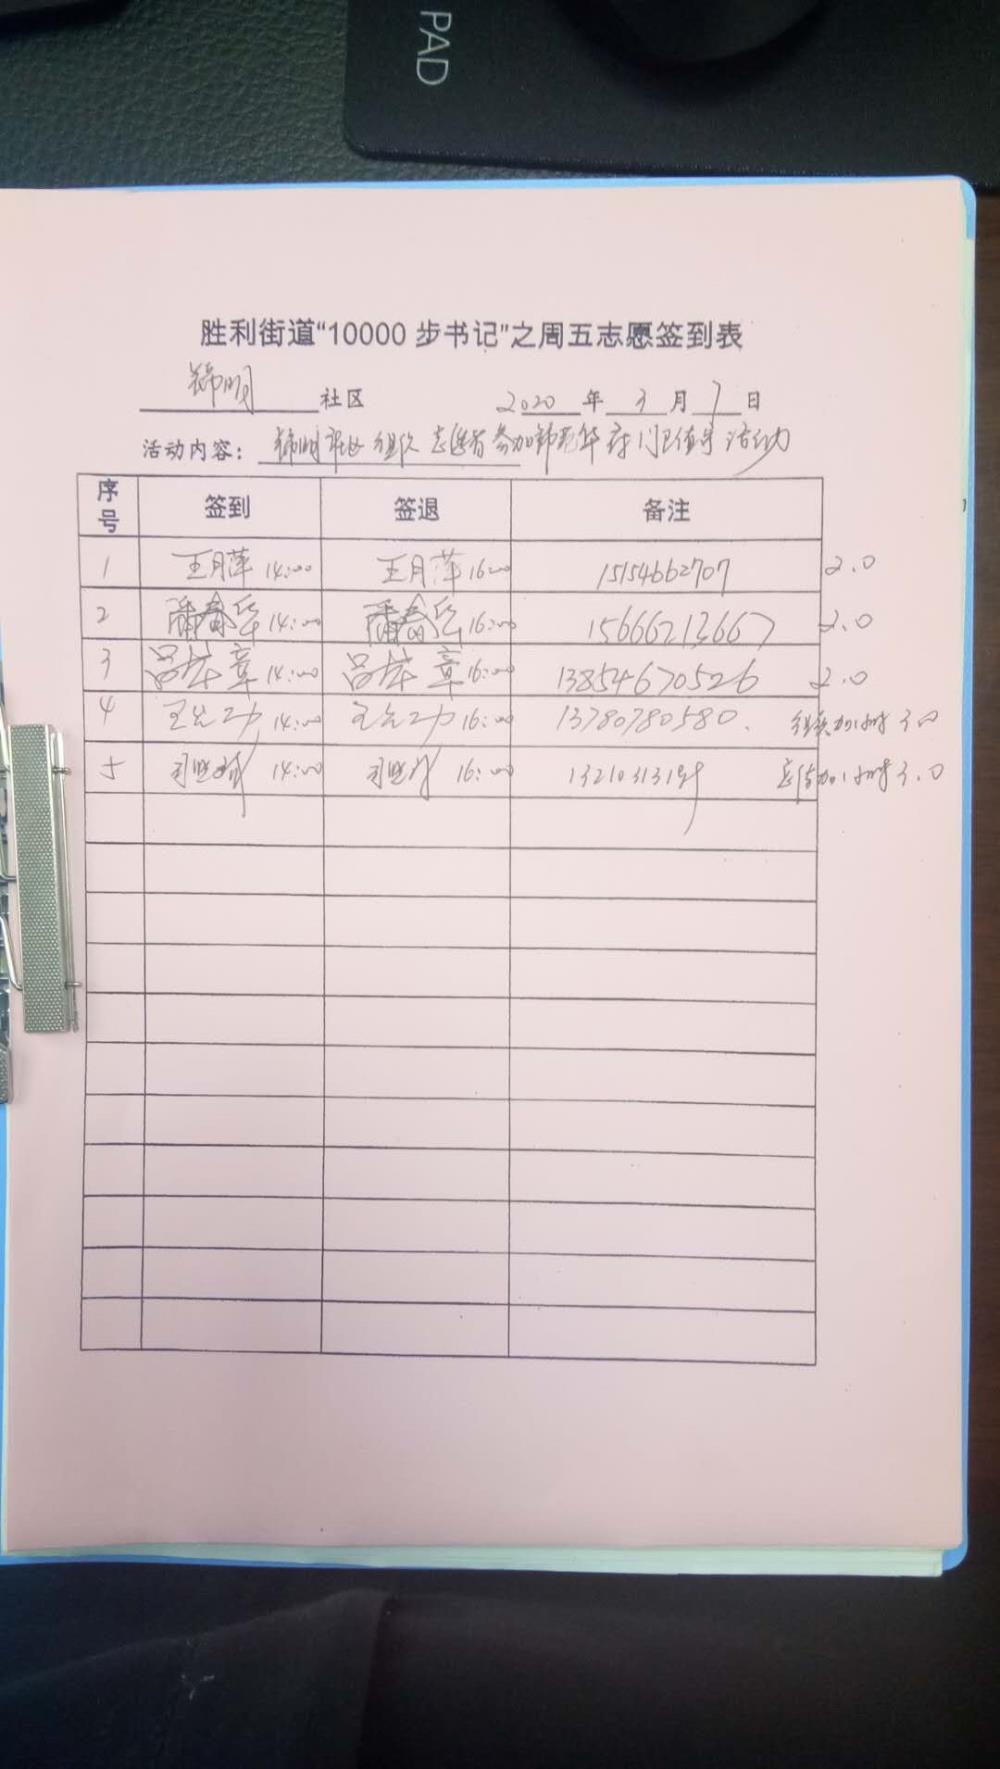 PAD
胜利街道“10000 步书记”之周五志愿签到表
锦明 社区 2020 年 3 月 7 日
活动内容： 锦明社区组织志愿者参加锦苑华府门卫值守活动
序号 签到 签退 备注
1 王月萍 14:00 王月萍 16:00 15154662707 2.0
2 潘春华 14:00 潘春华 16:00 15666213667 2.0
3 吕 章 14:00 吕 章 16:00 13854670526 2.0
4 王 14:00 王 16:00 13780780580. 组织加1小时 3.0
5 14:00 16:00 宣传加1小时 3.0